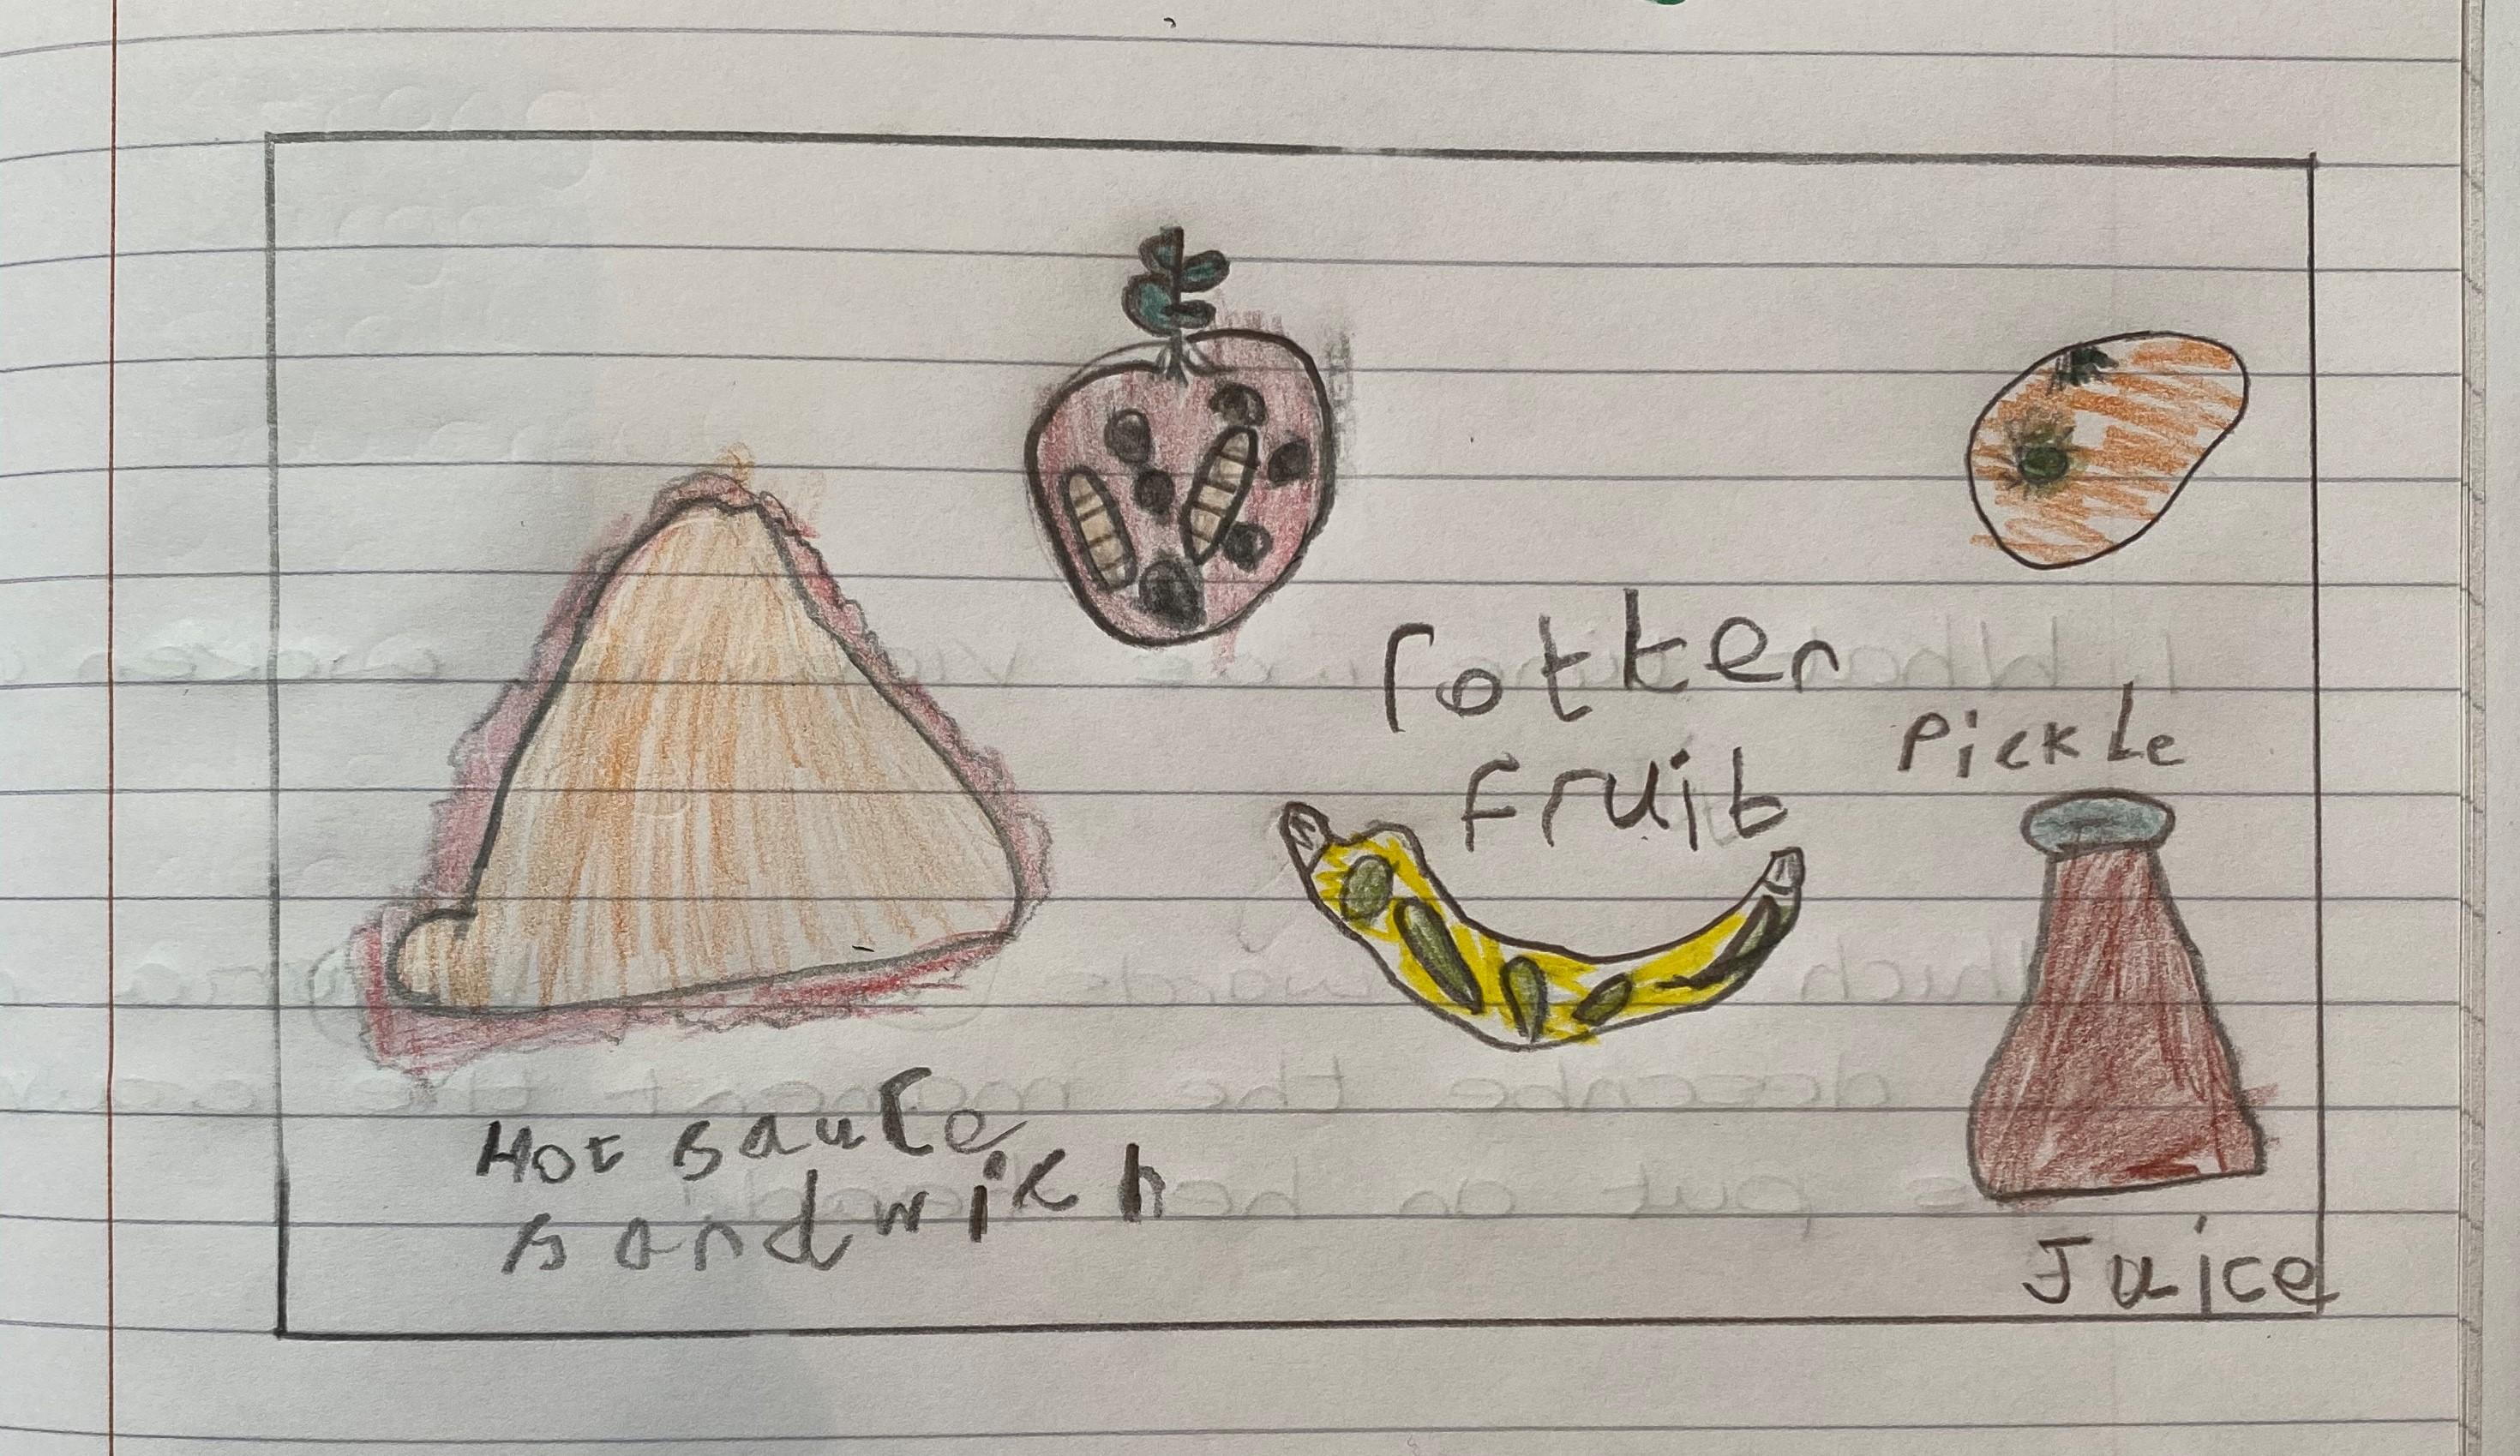 rotten
fruit
Pickle
Juice
Hot sauce
sandwich